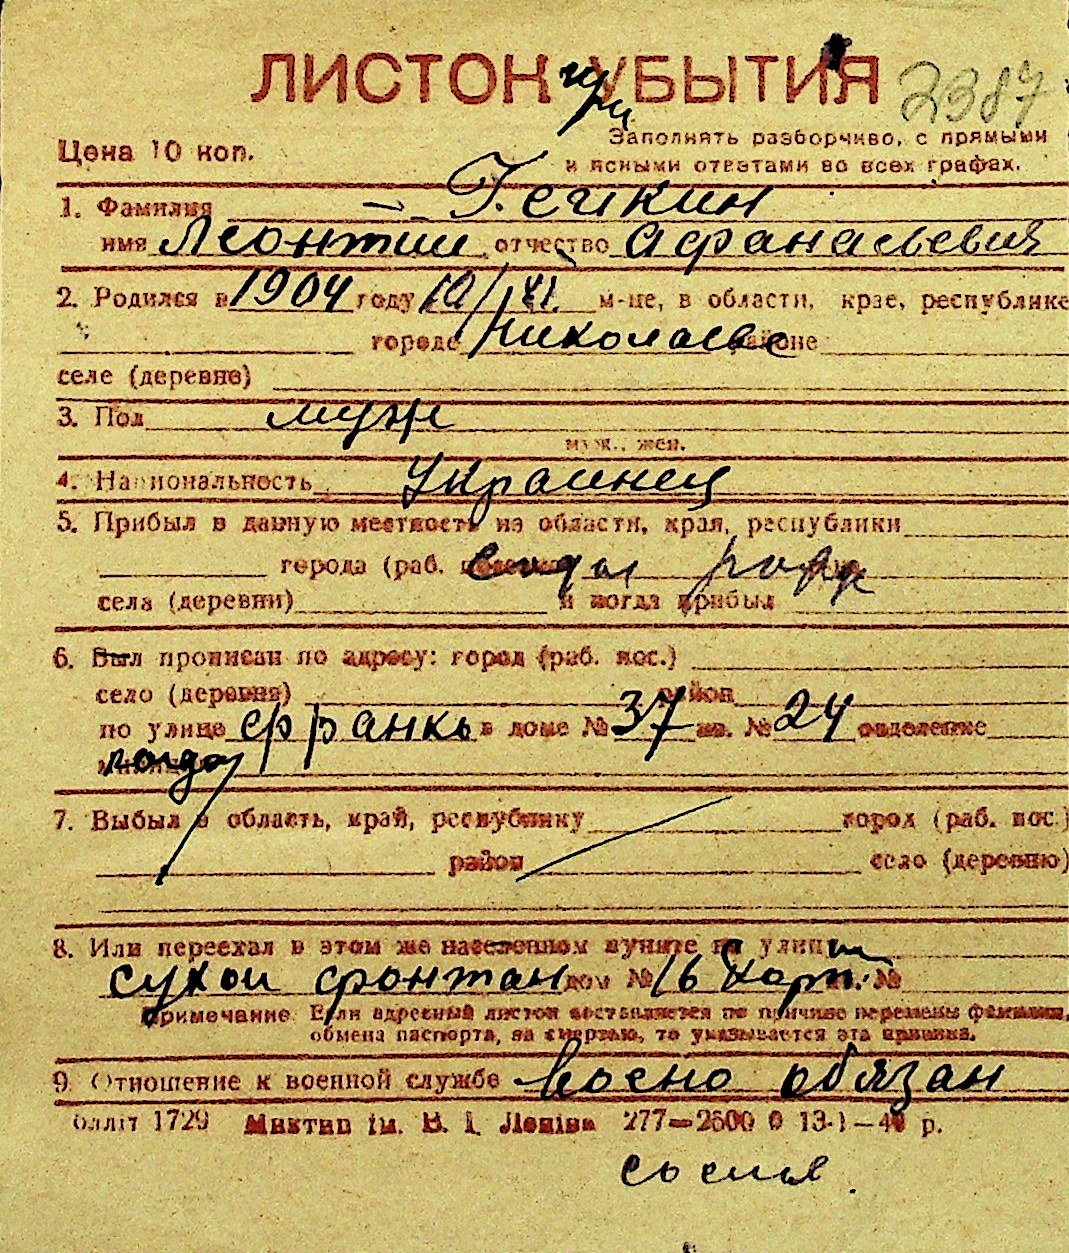 ЛИСТОК при УБЫТИЯ 2387
Цена 10 коп. Заполнять разборчиво, с прямыми
и ясными ответами во всех графах.
1. Фамилия Гечкин
имя Леонтии отчество Афанасьевич
2. Родился в 1904 году 10/XI. м-це, в области, крае, республике
городе Николаеве районе
селе (деревне)
3. Пол муж
муж., жен.
4. Национальность Украинец
5. Прибыл в данную местность из области, края, республики
города (раб.
села (деревни) и когда прибыл
6. Был прописан по адресу: город (раб. пос.)
село (деревня) район
по улице Франко в доме № 37 кв. № 24 отделение
милиции
7. Выбыл в область, край, республику город (раб. пос.)
район село (деревню)
8. Или переехал в этом же населенном пункте по улице
сухои фонтан дом № 16 № 
Примечание. Если адресный листок составляется по причине перемены фамилии,
обмена паспорта, за смертью, то указывается эта причина.
9. Отношение к военной службе Воено обязан
1729 ім. В. І. Леніна 277—2500 0 13-1—4 р.